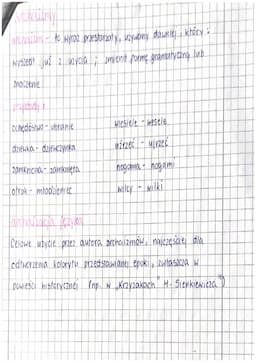 Archaizmy
Archaizm - to wyraz przestarzały, używany dawniej, który :
wyszedł już z użycia ; zmienił formę gramatyczną lub
znaczenie
przykłady :
ochędóstwo - ubranie wiesiele - wesele
dziewka - dziewczynka uźrzeć - ujrzeć
zamkniona - zamknięta nogama - nogami
otrok - młodzieniec wilcy - wilki
archaizacja języka
Celowe użycie przez autora archaizmów, najczęściej dla
odtworzenia kolorytu przedstawianej epoki, zwłaszcza w
powieści historycznej (np. w "Krzyżakach" H. Sienkiewicza)